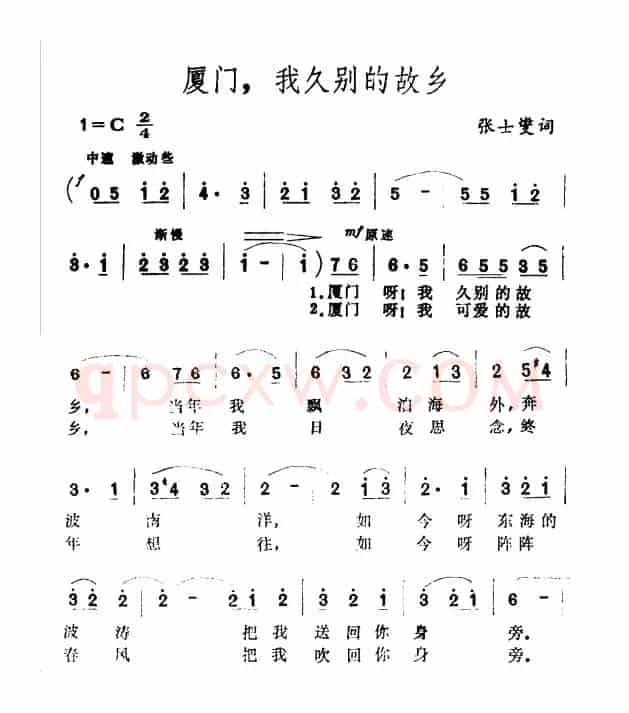 厦门，我久别的故乡
1=C 2/4 张士燮词
中速 激动些
f
(05 i̇2̇ | 4̇· 3̇ | 2̇i̇ 3̇2̇ | 5 - | 55 i̇2̇ |
渐慢 mf原速
3̇· i̇ | 2̇3̇ 2̇3̇ | i̇ - | i̇) 76 | 6· 5 | 6 55 35 |
1.厦门 呀！我 久别的故
2.厦门 呀！我 可爱的故
6 - | 6 76 | 6· 5 | 6 32 | 2 13 | 2 5#4 |
乡， 当年我 飘 泊海 外，奔
乡， 当年我 日 夜思 念，终
3· 1 | 3#4 32 | 2 - | 2 i̇3̇ | 2̇· i̇ | 3̇ 2̇i̇ |
波 南 洋， 如 今呀 东海的
年 想 往， 如 今呀 阵阵
3̇2̇ 2̇ | 2̇ - | 2̇i̇ 2̇ | 3̇ 2̇i̇ | 3̇2̇i̇ | 6 -
波 涛 把我 送回你身 旁。
春 风 把我 吹回你身 旁。
qpcxw.COM